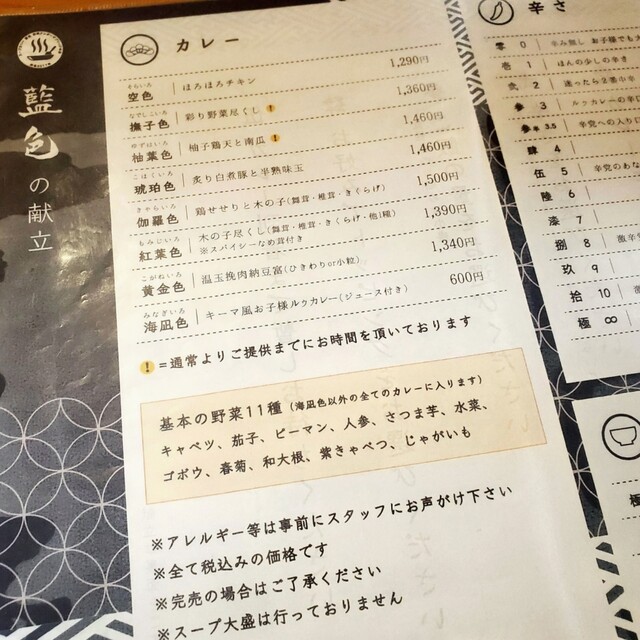 藍色の献立
カレー
そらいろ
空色 ほろほろチキン 1,290円
なでしこいろ
撫子色 彩り野菜尽くし! 1,360円
ゆずはいろ
柚葉色 柚子鶏天と南瓜! 1,460円
こはくいろ
琥珀色 炙り白煮豚と半熟味玉 1,460円
きゃらいろ
伽羅色 鶏せせりと木の子(舞茸・椎茸・きくらげ) 1,500円
もみじいろ
紅葉色 木の子尽くし(舞茸・椎茸・きくらげ・他1種) 1,390円
※スパイシーなめ茸付き
こがねいろ
黄金色 温玉挽肉納豆富(ひきわりor小粒) 1,340円
みなぎいろ
海凪色 キーマ風お子様ルゥカレー(ジュース付き) 600円
!=通常よりご提供までにお時間を頂いております
基本の野菜11種(海凪色以外の全てのカレーに入ります)
キャベツ、茄子、ピーマン、人参、さつま芋、水菜、
ゴボウ、春菊、和大根、紫きゃべつ、じゃがいも
※アレルギー等は事前にスタッフにお声がけ下さい
※全て税込みの価格です
※完売の場合はご了承ください
※スープ大盛は行っておりません
辛さ
零 0 辛み無し お子様でも
壱 1 ほんの少しの辛さ
弐 2 迷ったら2番
参 3 ルゥカレーの辛
参半 3.5 辛党への入り
肆 4
伍 5 辛党のあな
陸 6
漆 7
捌 8 激辛
玖 9
拾 10
極 ∞
極